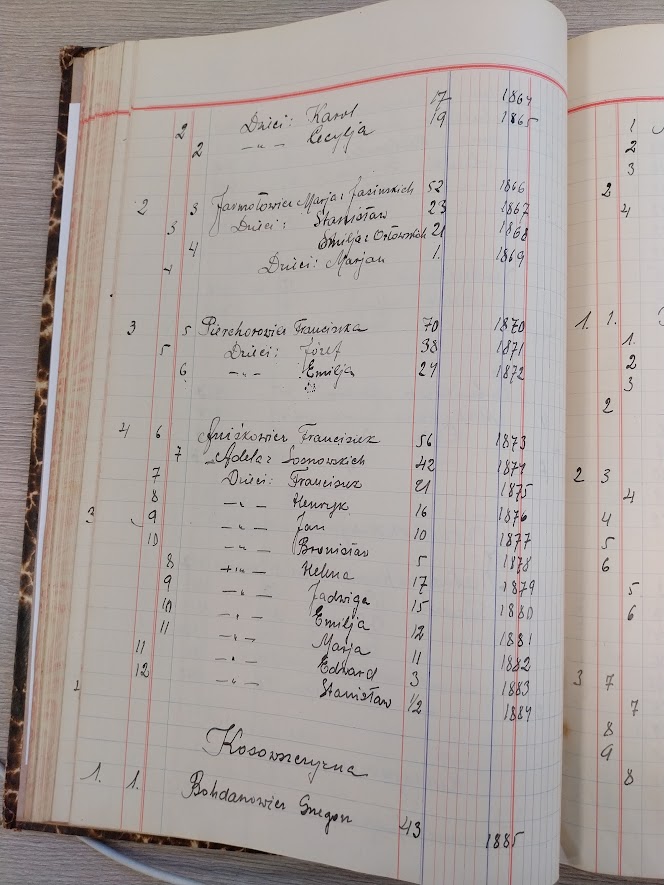 Dzieci: Karol 17 1864
2 — „ — Cecylja 19 1865
2
2 3 Jarmołowicz Marja z Jasinskich 52 1866
3 Dzieci: Stanisław 23 1867
4 Emilja z Orłowskich 21 1868
4 Dzieci: Marjan 1. 1869
3 5 Pierchorowicz Franciszka 70 1870
5 Dzieci: Józef 38 1871
6 — „ — Emilja 24 1872
4 6 Franciszek 56 1873
7 Adela z Sosnowskich 42 1874
7 Dzieci: Franciszek 21 1875
8 — „ — Henryk 16 1876
3 9 — „ — Jan 10 1877
10 — „ — Bronisław 5 1878
8 — „ — Helena 17 1879
9 — „ — Jadwiga 15 1880
10 — „ — Emilja 12 1881
11 — „ — Marja 11 1882
11 — „ — Edward 3 1883
1 12 — „ — Stanisław 1/2 1884
Kosowszczyzna
1. 1. Bohdanowicz Gregor 43 1885
1
2
3
2
4
1. 1.
1.
2
3
2
2 3
4
4
5
6
5
6
3 7
7
8
9
8